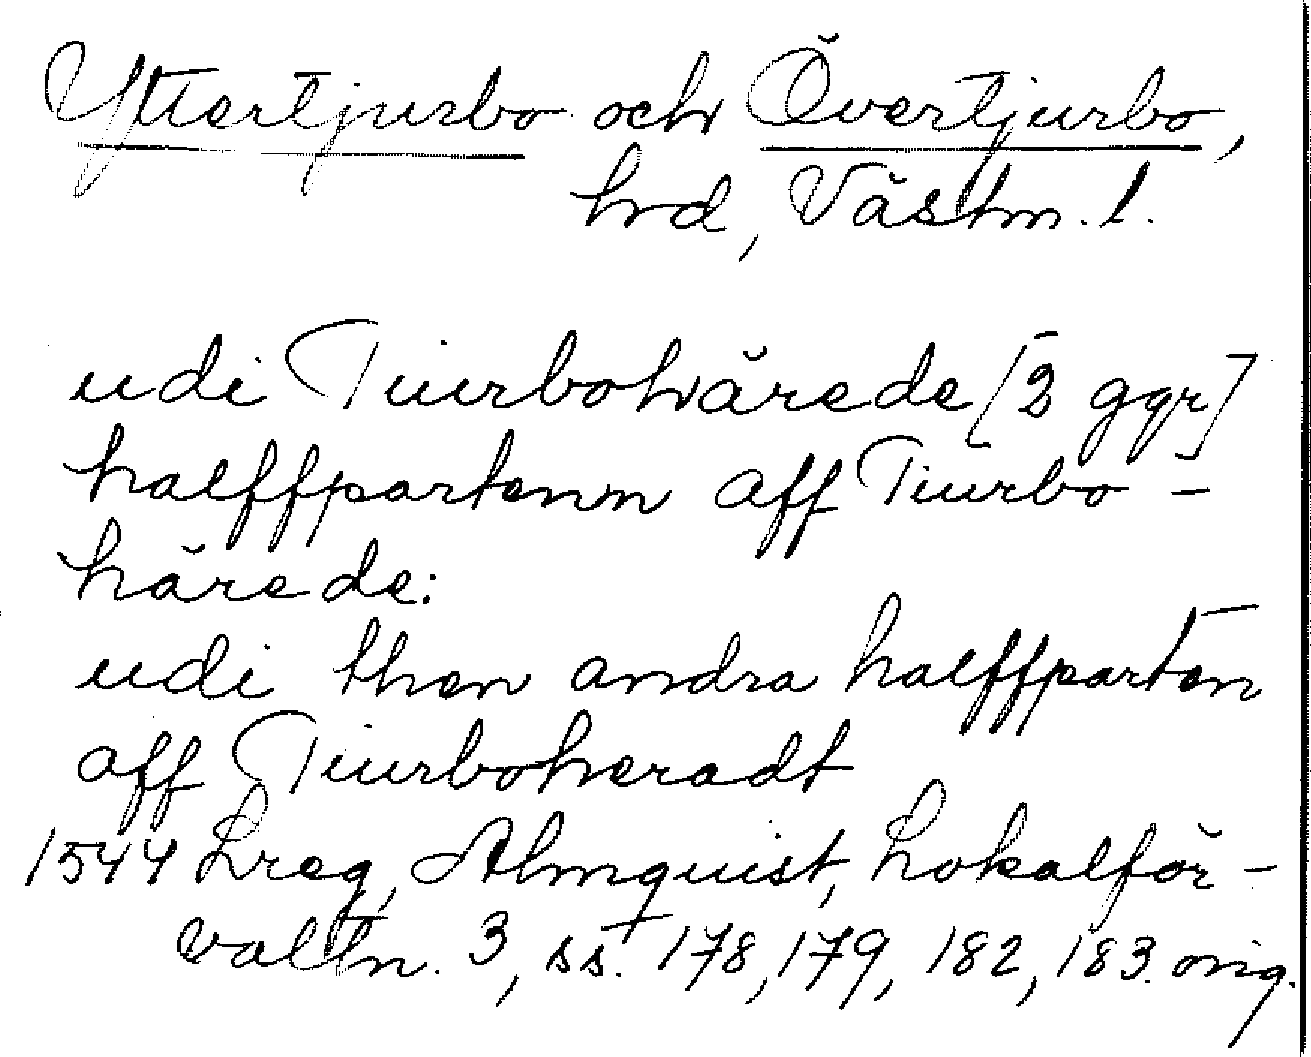 Yttertjurbo och Övertjurbo,
hrd, Västm. l.
udi Tiurbohärede [2 ggr]
halffpartenn aff Tiurbo-
härede:
udi then andra halffparten
aff Tiurboheradt
1544 Lreg, Almquist, Lokalför-
valtn. 3, ss. 178, 179, 182, 183. orig.